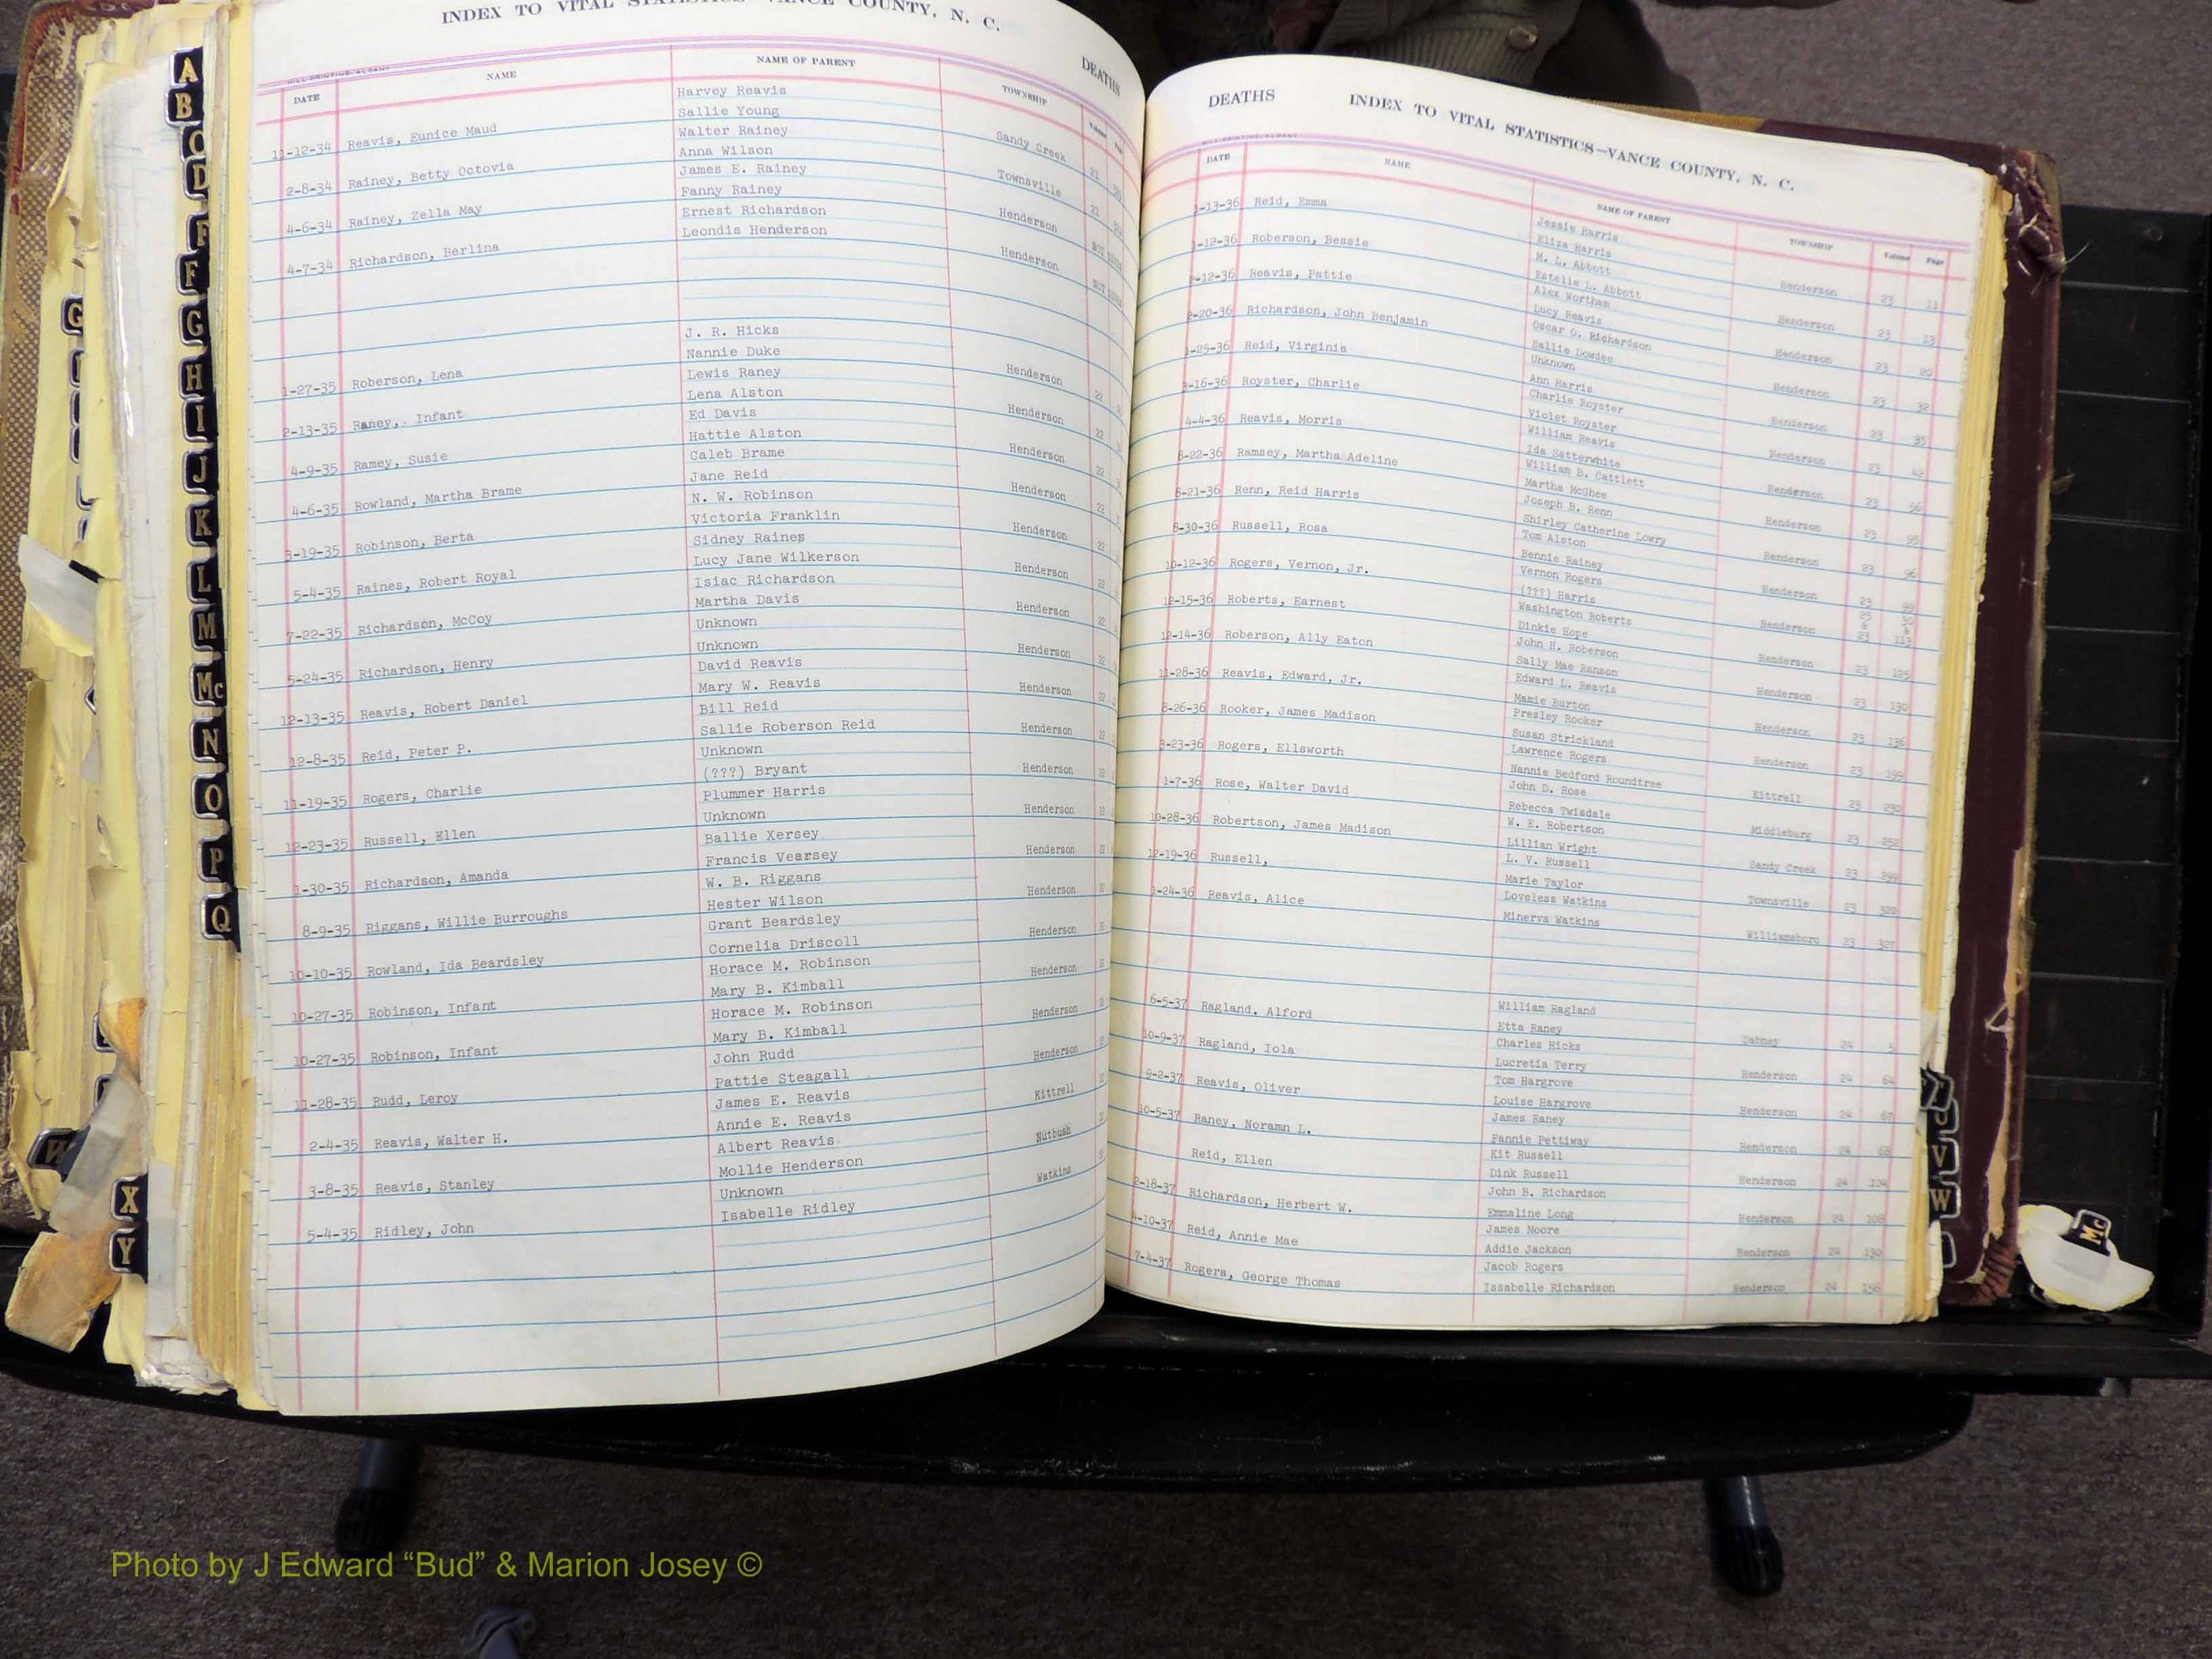 INDEX TO VITAL STATISTICS—VANCE COUNTY, N. C.
DEATHS
DATE NAME NAME OF PARENT TOWNSHIP Volume
Harvey Reavis
11-12-34 Reavis, Eunice Maud Sallie Young Sandy Creek 21
Walter Rainey
2-8-34 Rainey, Betty Octovia Anna Wilson Townsville 21
James E. Rainey
4-6-34 Rainey, Zella May Fanny Rainey Henderson
Ernest Richardson
4-7-34 Richardson, Berlina Leondis Henderson Henderson
J. R. Hicks
1-27-35 Roberson, Lena Nannie Duke Henderson 22
Lewis Raney
2-13-35 Raney, Infant Lena Alston Henderson 22
Ed Davis
4-9-35 Ramey, Susie Hattie Alston Henderson 22
Caleb Brame
4-6-35 Rowland, Martha Brame Jane Reid Henderson 22
N. W. Robinson
3-19-35 Robinson, Berta Victoria Franklin Henderson 22
Sidney Raines
5-4-35 Raines, Robert Royal Lucy Jane Wilkerson Henderson 22
Isiac Richardson
7-22-35 Richardson, McCoy Martha Davis Henderson 22
Unknown
5-24-35 Richardson, Henry Unknown Henderson 22
David Reavis
12-13-35 Reavis, Robert Daniel Mary W. Reavis Henderson 22
Bill Reid
12-8-35 Reid, Peter P. Sallie Roberson Reid Henderson 22
Unknown
11-19-35 Rogers, Charlie (???) Bryant Henderson
Plummer Harris
12-23-35 Russell, Ellen Unknown Henderson
Ballie Xersey
1-30-35 Richardson, Amanda Francis Vearsey Henderson
W. B. Riggans
8-9-35 Riggans, Willie Burroughs Hester Wilson Henderson
Grant Beardsley
10-10-35 Rowland, Ida Beardsley Cornelia Driscoll Henderson
Horace M. Robinson
10-27-35 Robinson, Infant Mary B. Kimball Henderson
Horace M. Robinson
10-27-35 Robinson, Infant Mary B. Kimball Henderson
John Rudd
11-28-35 Rudd, Leroy Pattie Steagall Henderson
James E. Reavis
2-4-35 Reavis, Walter H. Annie E. Reavis Kittrell
Albert Reavis
3-8-35 Reavis, Stanley Mollie Henderson Nutbush
Unknown
5-4-35 Ridley, John Isabelle Ridley Watkins
DEATHS INDEX TO VITAL STATISTICS—VANCE COUNTY, N. C.
DATE NAME NAME OF PARENT TOWNSHIP Volume Page
Jessie Harris
1-13-36 Reid, Emma Eliza Harris Henderson 23 11
M. L. Abbott
1-12-36 Roberson, Bessie Estelle L. Abbott Henderson 23 13
Alex Wortham
2-12-36 Reavis, Pattie Lucy Reavis Henderson 23 20
Oscar O. Richardson
2-20-36 Richardson, John Benjamin Sallie Dowdee Henderson 23 32
Unknown
1-25-36 Reid, Virginia Ann Harris Henderson 23 35
Charlie Royster
3-16-36 Royster, Charlie Violet Royster Henderson 23 42
William Reavis
4-4-36 Reavis, Morris Ida Satterwhite Henderson 23 56
William B. Cattlett
8-22-36 Ramsey, Martha Adeline Martha McGhee Henderson 23 95
Joseph B. Renn
8-21-36 Renn, Reid Harris Shirley Catherine Lowry Henderson 23 96
Tom Alston
8-30-36 Russell, Rosa Bennie Rainey Henderson 23 99
Vernon Rogers 25 30
10-12-36 Rogers, Vernon, Jr. (???) Harris Henderson & 23 & 113
Washington Roberts
12-15-36 Roberts, Earnest Dinkie Hope Henderson 23 125
John H. Roberson
12-14-36 Roberson, Ally Eaton Sally Mae Ranson Henderson 23 130
Edward L. Reavis
11-28-36 Reavis, Edward, Jr. Mamie Burton Henderson 23 136
Presley Rooker
8-26-36 Rooker, James Madison Susan Strickland Henderson 23 199
Lawrence Rogers
3-23-36 Rogers, Ellsworth Nannie Bedford Roundtree Kittrell 23 230
John D. Rose
1-7-36 Rose, Walter David Rebecca Twisdale Middleburg 23 252
W. E. Robertson
10-28-36 Robertson, James Madison Lillian Wright Sandy Creek 23 299
L. V. Russell
12-19-36 Russell, Marie Taylor Townsville 23 320
Loveless Watkins
3-24-36 Reavis, Alice Minerva Watkins Williamsboro 23 327
William Ragland
6-5-37 Ragland. Alford Etta Raney Dabney 24 5
Charles Hicks
10-9-37 Ragland, Iola Lucretia Terry Henderson 24 64
Tom Hargrove
9-2-37 Reavis, Oliver Louise Hargrove Henderson 24 67
James Raney
10-5-37 Raney, Noramn L. Fannie Pettiway Henderson 24 68
Kit Russell
Reid, Ellen Dink Russell Henderson 24 104
John B. Richardson
2-18-37 Richardson, Herbert W. Emmaline Long Henderson 24 108
James Moore
4-10-37 Reid, Annie Mae Addie Jackson Henderson 24 130
Jacob Rogers
7-4-37 Rogers, George Thomas Issabelle Richardson Henderson 24 156
A
B
C
D
F
F
G
G
H
I
J
K
L
M
Mc
N
O
P
Q
W
X
Y
V
W
Mc
Photo by J Edward “Bud” & Marion Josey ©